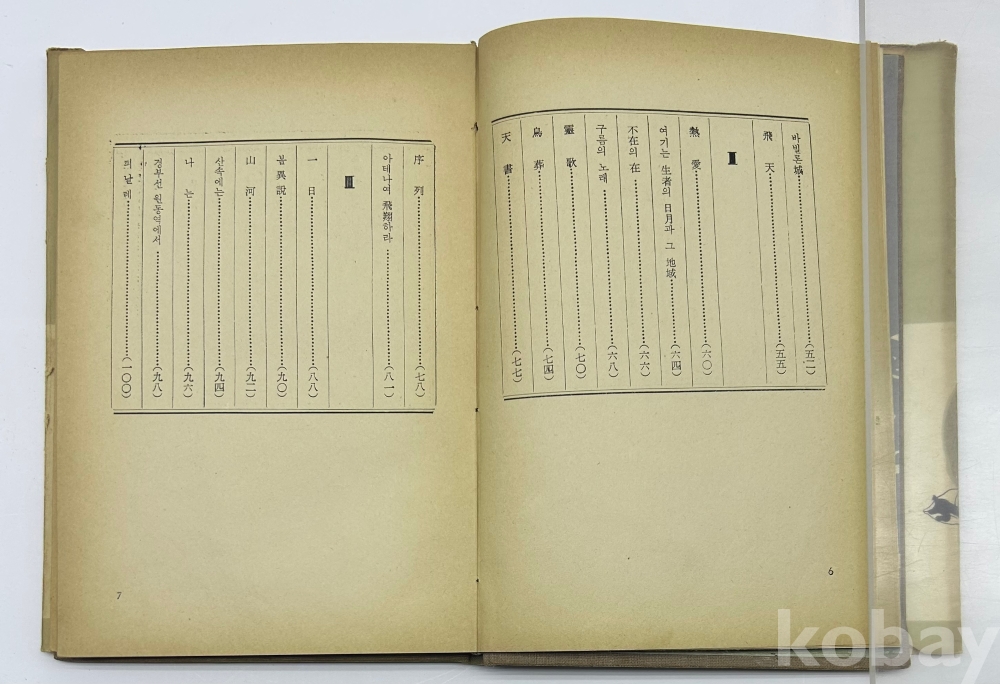 바빌론城……(五二)
飛天……(五五)
Ⅱ
熱愛……(六〇)
여기는 生者의 日月과 그 地域……(六四)
不在의 在……(六六)
구름의 노래……(六八)
靈歌……(七〇)
鳥葬……(七四)
天書……(七七)
6
序列……(七八)
아테나여 飛翔하라……(八一)
Ⅲ
一日……(八八)
봄異說……(九〇)
山河……(九二)
산속에는……(九四)
나는……(九六)
경부선 원동역에서……(九八)
픠날레……(一〇〇)
7
kobay